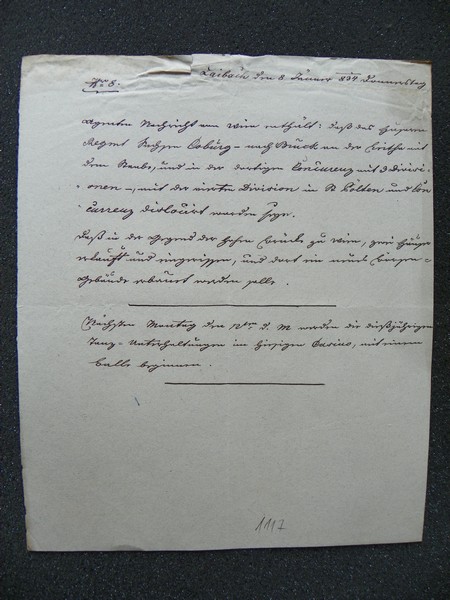 No 8.
Laibach den 8 Jänner 834 Donnerstag
Nachricht aus Wien enthält: daß das Husaren
Regmt Sachsen Coburg – nach Bruck an der
dem Staabe, und in der dortigen Concurenz mit 3 Divisi-
onen –, mit der vierten Division in St Pölten und Con-
currenz dislocirt werden
Daß in der Gegend der Hohen Brücke zu Wien, zwei Häuser
und eingerissen, und dort ein neues
Gebäude erbauet werden solle.
Nächsten Montag den d. M. werden die dießjährigen
Tanz-Unterhaltungen im hiesigen Casino, mit einem
Balle beginnen.
1117